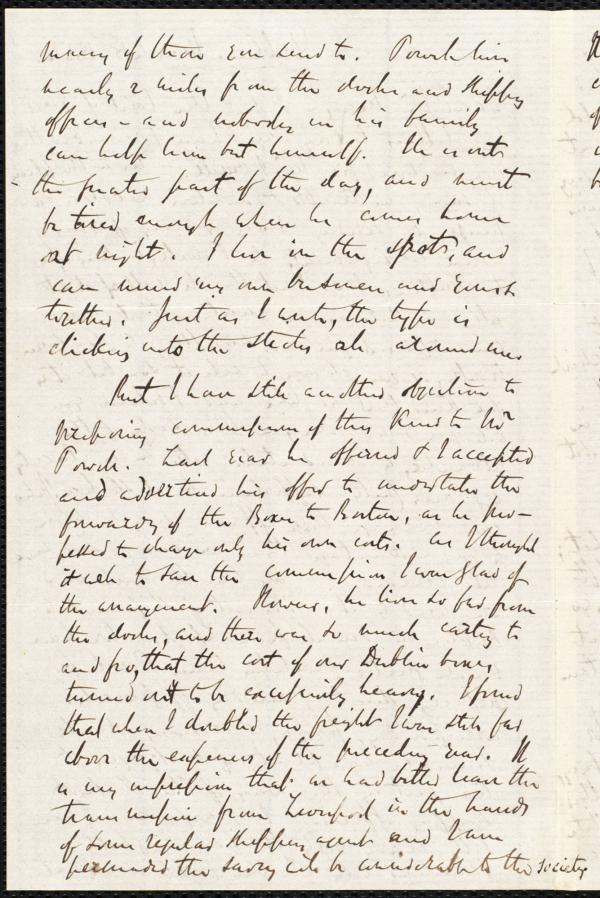 many of those you send to. Powell lives
nearly 2 miles from the docks and shipping
offices - and nobody in his family
can help him but himself. He is out
the greater part of the day, and must
be tired enough when he comes home
at night. I live in the spot, and
can mind my own business and yours
together. Just as I write, the type is
clicking into the sticks all around me
But I have still another objection to
proposing commissions of this kind to Mr
Powell. Last year he offered & I accepted
and advertised his offer to undertake the
forwarding of the Boxes to Boston, as he pro-
posed to charge only his own costs. As I thought
it well to save the commission I was glad of
the arrangement. However, he lives so far from
the docks, and there was so much carting to
and fro, that the cost of our Dublin boxes
turned out to be excessively heavy. I found
that when I doubled the freight I was still far
above the expenses of the preceding year. It
is my impression that we had better leave the
transmission from Liverpool in the hands
of some regular shipping agent and I am
persuaded the saving will be considerable to the society